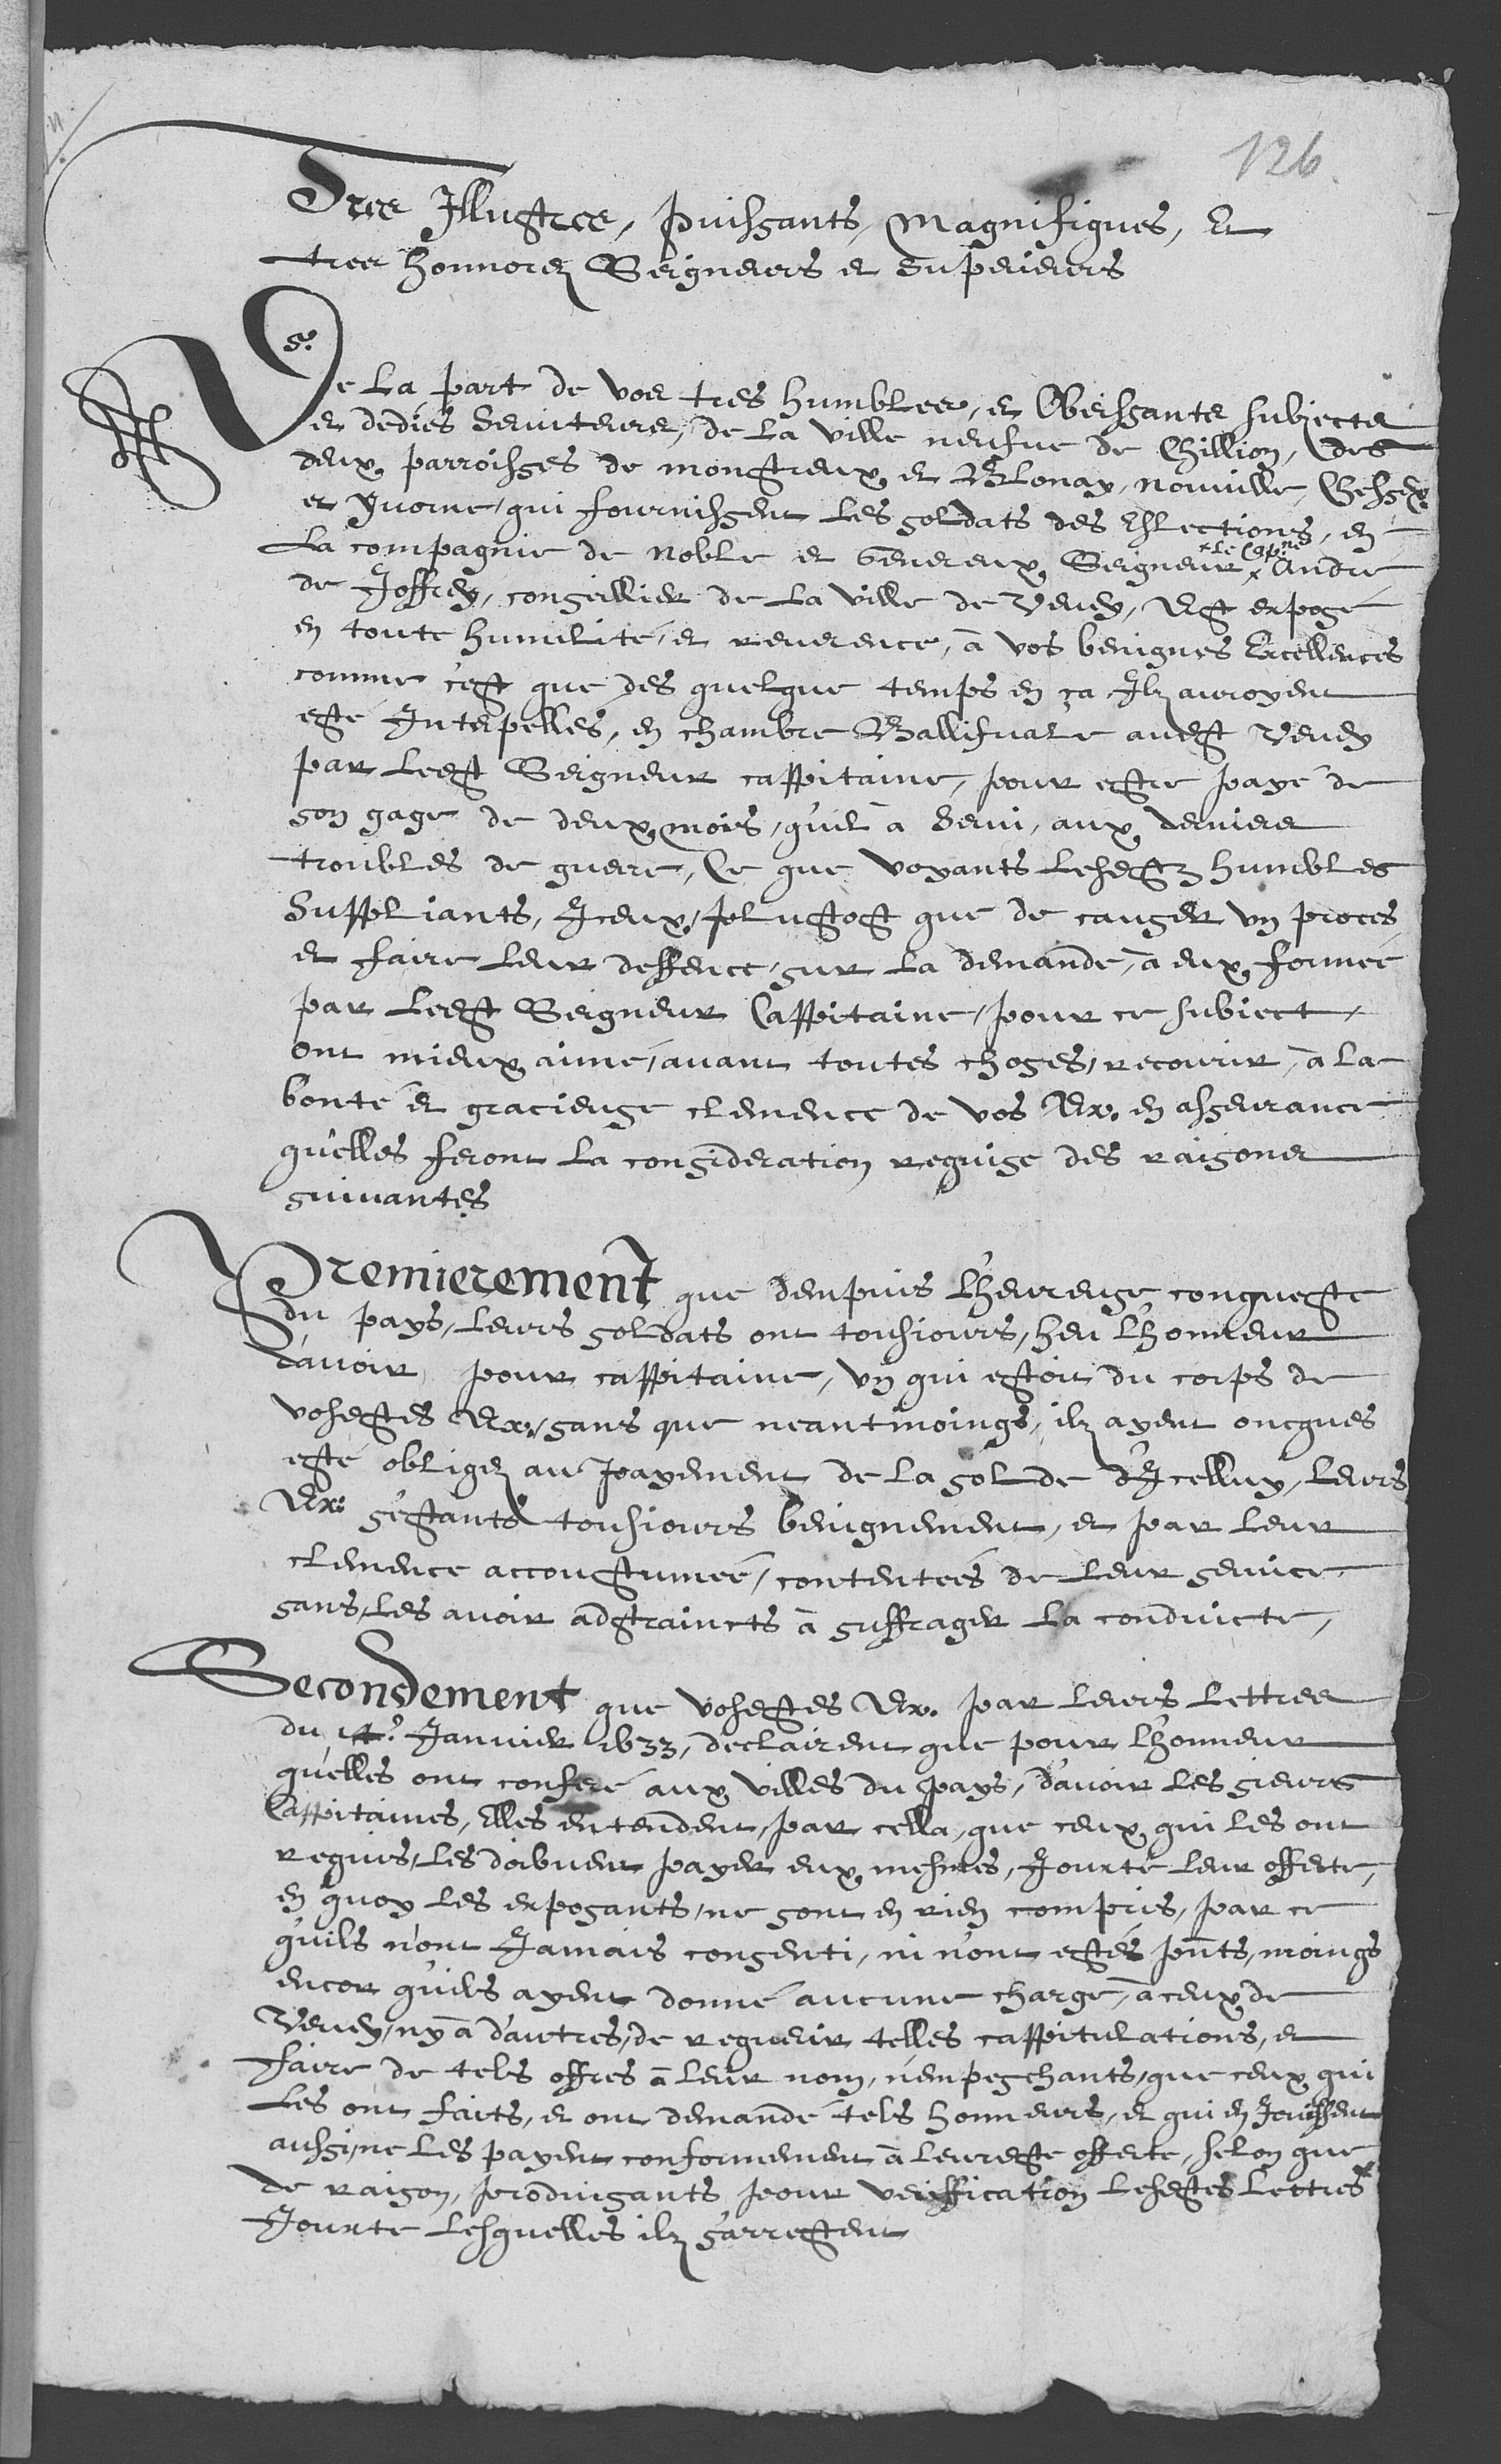 126.
Tres Illustres, Puissants, Magnifiques, Et
tres honnorez Seigneurs et Superieurs
De la part de vos tres humbles, et Obeissants subjects
et dediés Serviteurs, de la ville neufve de Chillion, des
deux parroisses de monstreux et Blonay, nouville, Chessex
et Yvorne, qui fournissent les soldats des Eslections, en
la compagnie de noble et Genereux Seigneur x André
x le Capne
de Joffrey, conseillier de la ville de Vevey, Est exposé
en toute humilité, et reverence, à vos benignes Excellences
comme c'est que dès quelque temps en ça Ilz auroyent
esté Interpellés, en chambre Ballifvale audst Vevey
par ledst Seigneur cappitaine, pour estre payé de
son gage de deux mois, qu'il à Servi, aux derniers
troubles de guerre, Ce que voyants lesdstz humbles
Suppliants, Iceux, plustost que de causer un proces
et faire leur deffence, sur la demande, à eux formée
par ledst Seigneur Cappitaine, pour ce subject,
ont mieux aimé, avant toutes choses, recourir, à la
bonté et gracieuse clemence de vos Ex. en asseurance
qu'elles feront la consideration requise des raisons
suivantes
Premierement que dempuis l'heureuse conqueste
du pays, leurs soldats ont tousiours, heu l'honneur
d'avoir pour cappitaine, un qui estoit du corps de
vosdstes Ex. sans que neantmoings, ilz ayent oncques
esté obligez au payement de la solde d'Icelluy, leurs
Ex. s'estants tousiours benignement, et par leur
clemence accoustumée, contentées de leur service
sans, les avoir adstraincts à suffrager la conduicte,
Secondement que vosdstes Ex. par leurs lettres
du Janvier 1633, declairent que pour l'honneur
qu'elles ont conferé aux villes du pays, d'avoir les sieurs
Cappitaines, Elles entendent, par cella, que ceux qui les ont
requis, les doibvent payer eux mesmes, Jouxte leur offerte,
en quoy les exposants, ne sont en rien compris, par ce
qu'ils n'ont Jamais consenti, ni n'ont estés pnts, moings
encor qu'ils ayent donné aucune charge, à ceux de
Vevey, ny à d'autres, de requerir telles cappitulations, et
faire de tels offres à leur nom, n'empeschants, que ceux qui
les ont faits, et ont demandé tels honneurs, et qui en Jouissent
aussi, ne les payent conformement à leurdste offerte, selon que
de raison, produisants pour veriffication lesdstes Lettres
Jouxte lesquelles ilz s'arrestent